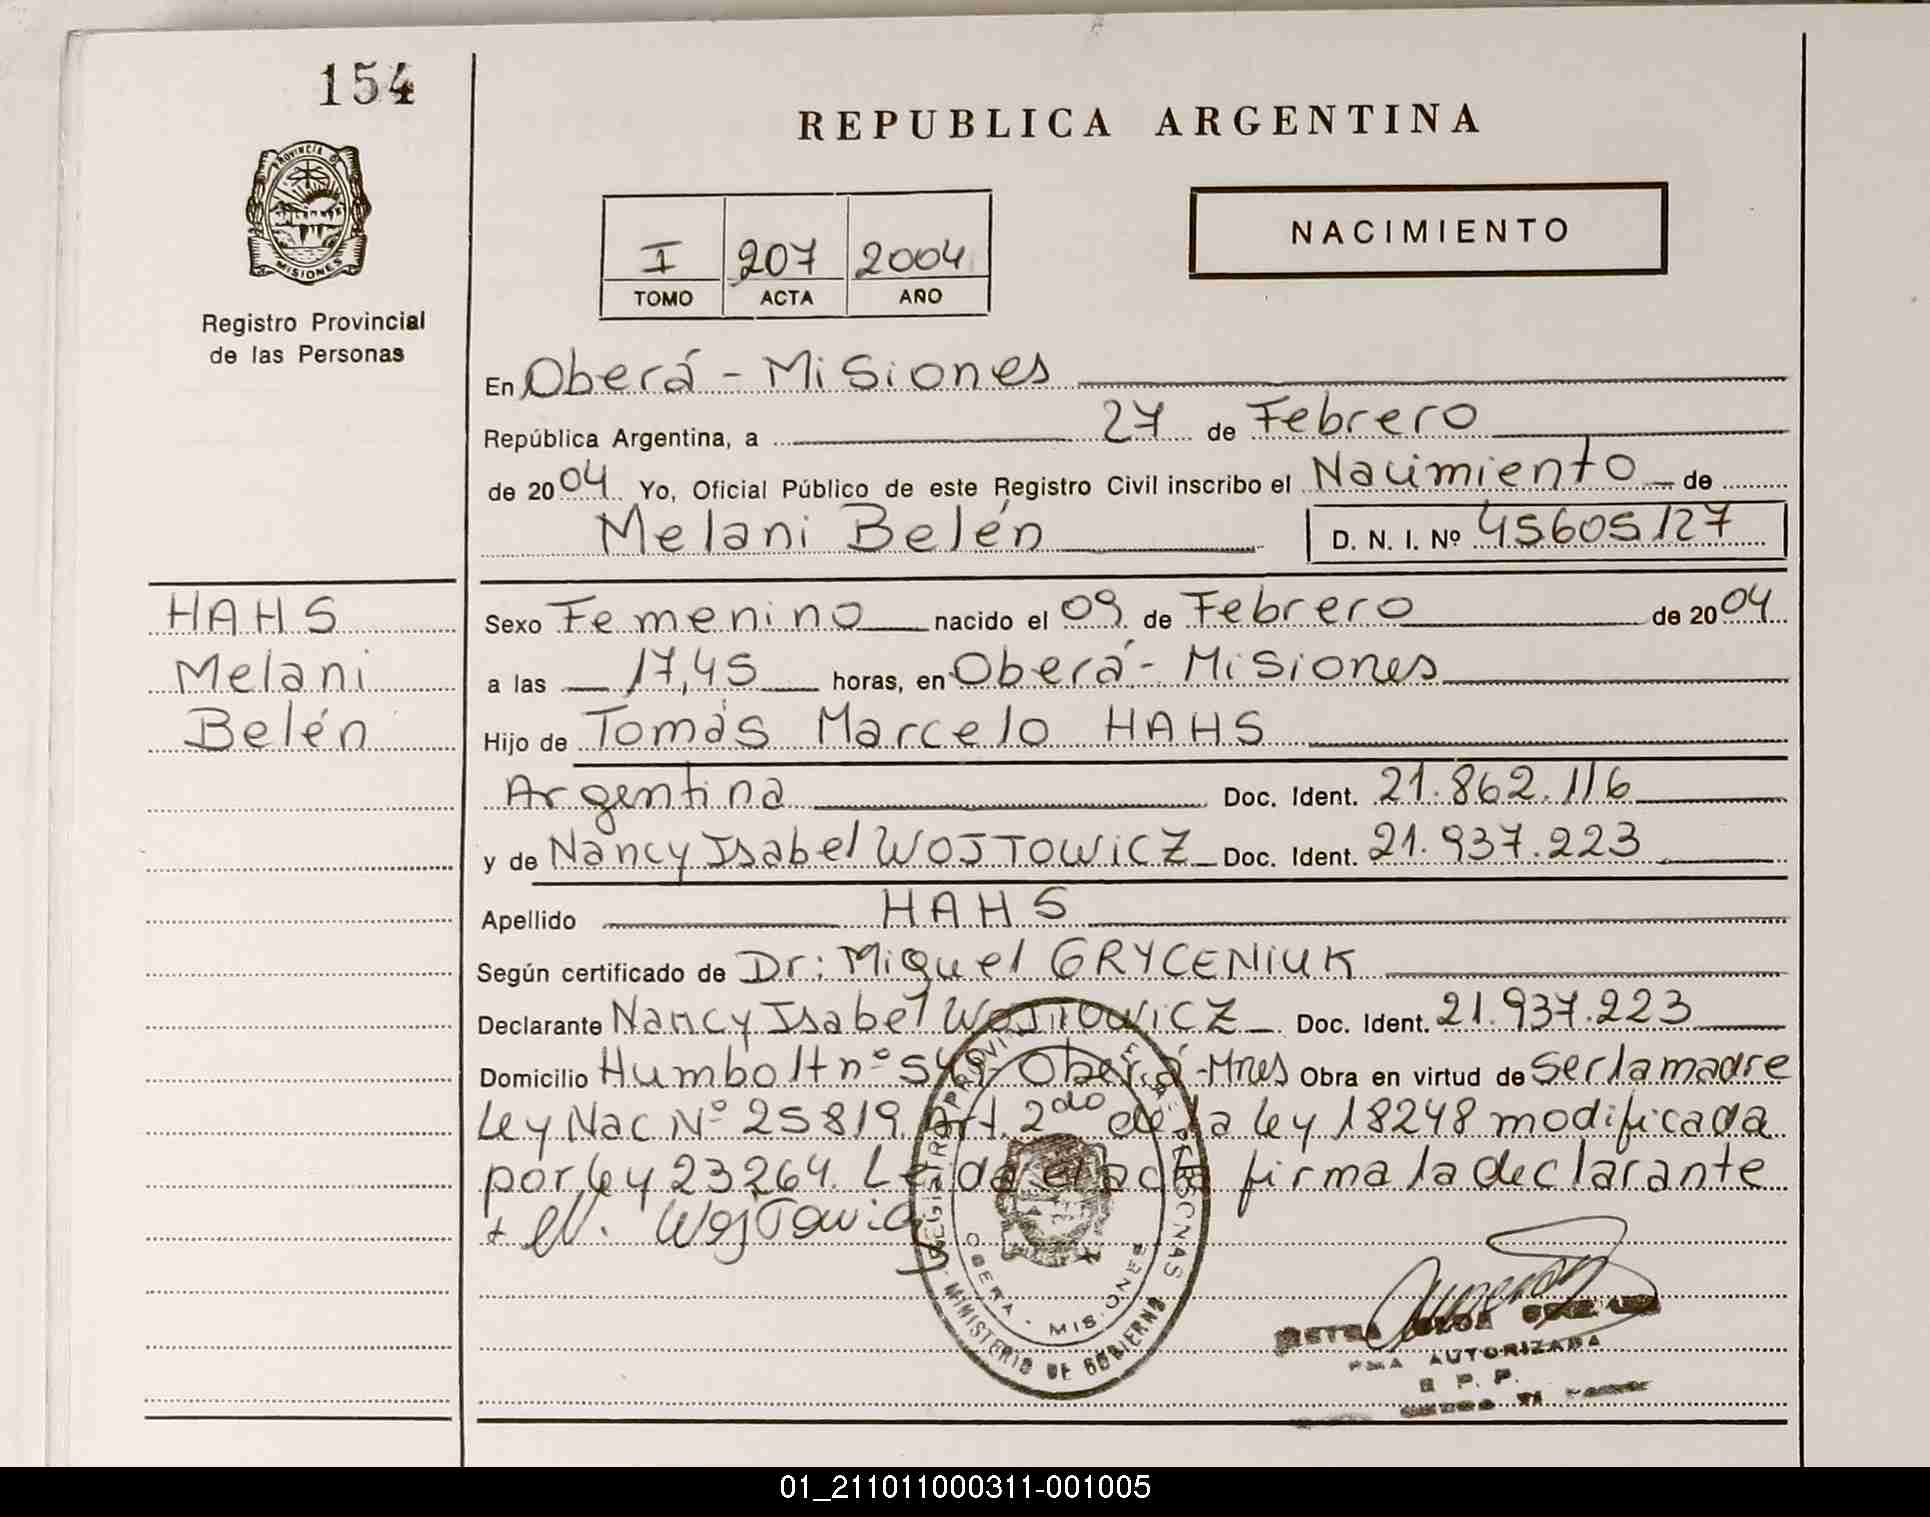 154
REPUBLICA ARGENTINA
PROVINCIA DE
MISIONES
NACIMIENTO
I 207 2004
TOMO ACTA AÑO
Registro Provincial
de las Personas
En Oberá - Misiones
República Argentina, a 27 de Febrero
de 2004 Yo, Oficial Público de este Registro Civil inscribo el Nacimiento de
Melani Belén D. N. I. Nº 45605127
HAHS
Melani
Belén
Sexo Femenino nacido el 09 de Febrero de 2004
a las 17,45 horas, en Oberá - Misiones
Hijo de Tomás Marcelo HAHS
Argentina Doc. Ident. 21.862.116
y de Nancy Isabel WOJTOWICZ Doc. Ident. 21.937.223
Apellido HAHS
Según certificado de Dr: Miguel GRYCENIUK
Declarante Nancy Isabel WOJTOWICZ Doc. Ident. 21.937.223
Domicilio Humbolt nº Oberá - Mnes Obra en virtud de ser la madre
Ley Nac Nº 25819 Art. 2do de la ley 18248 modificada
por ley 23264. Leída el acta firma la declarante
+ N. Wojtowicz
REGISTRO PROVINCIAL DE LAS PERSONAS
OBERA - MISIONES
MINISTERIO DE GOBIERNO
AUTORIZADA
R. P. P.
01_211011000311-001005